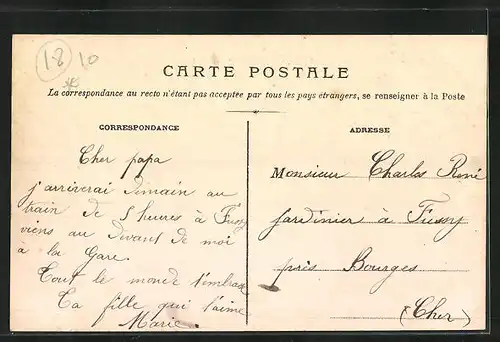 18
10
CARTE POSTALE
La correspondance au recto n'étant pas acceptée par tous les pays étrangers, se renseigner à la Poste
CORRESPONDANCE
Cher papa
j'arriverai demain au
train de 5 heures à Fussy
viens au devant de moi
à la Gare.
Tout le monde t'embrasse
Ta fille qui t'aime
Marie
ADRESSE
Monsieur Charles René
jardinier à Fussy
près Bourges
(Cher)